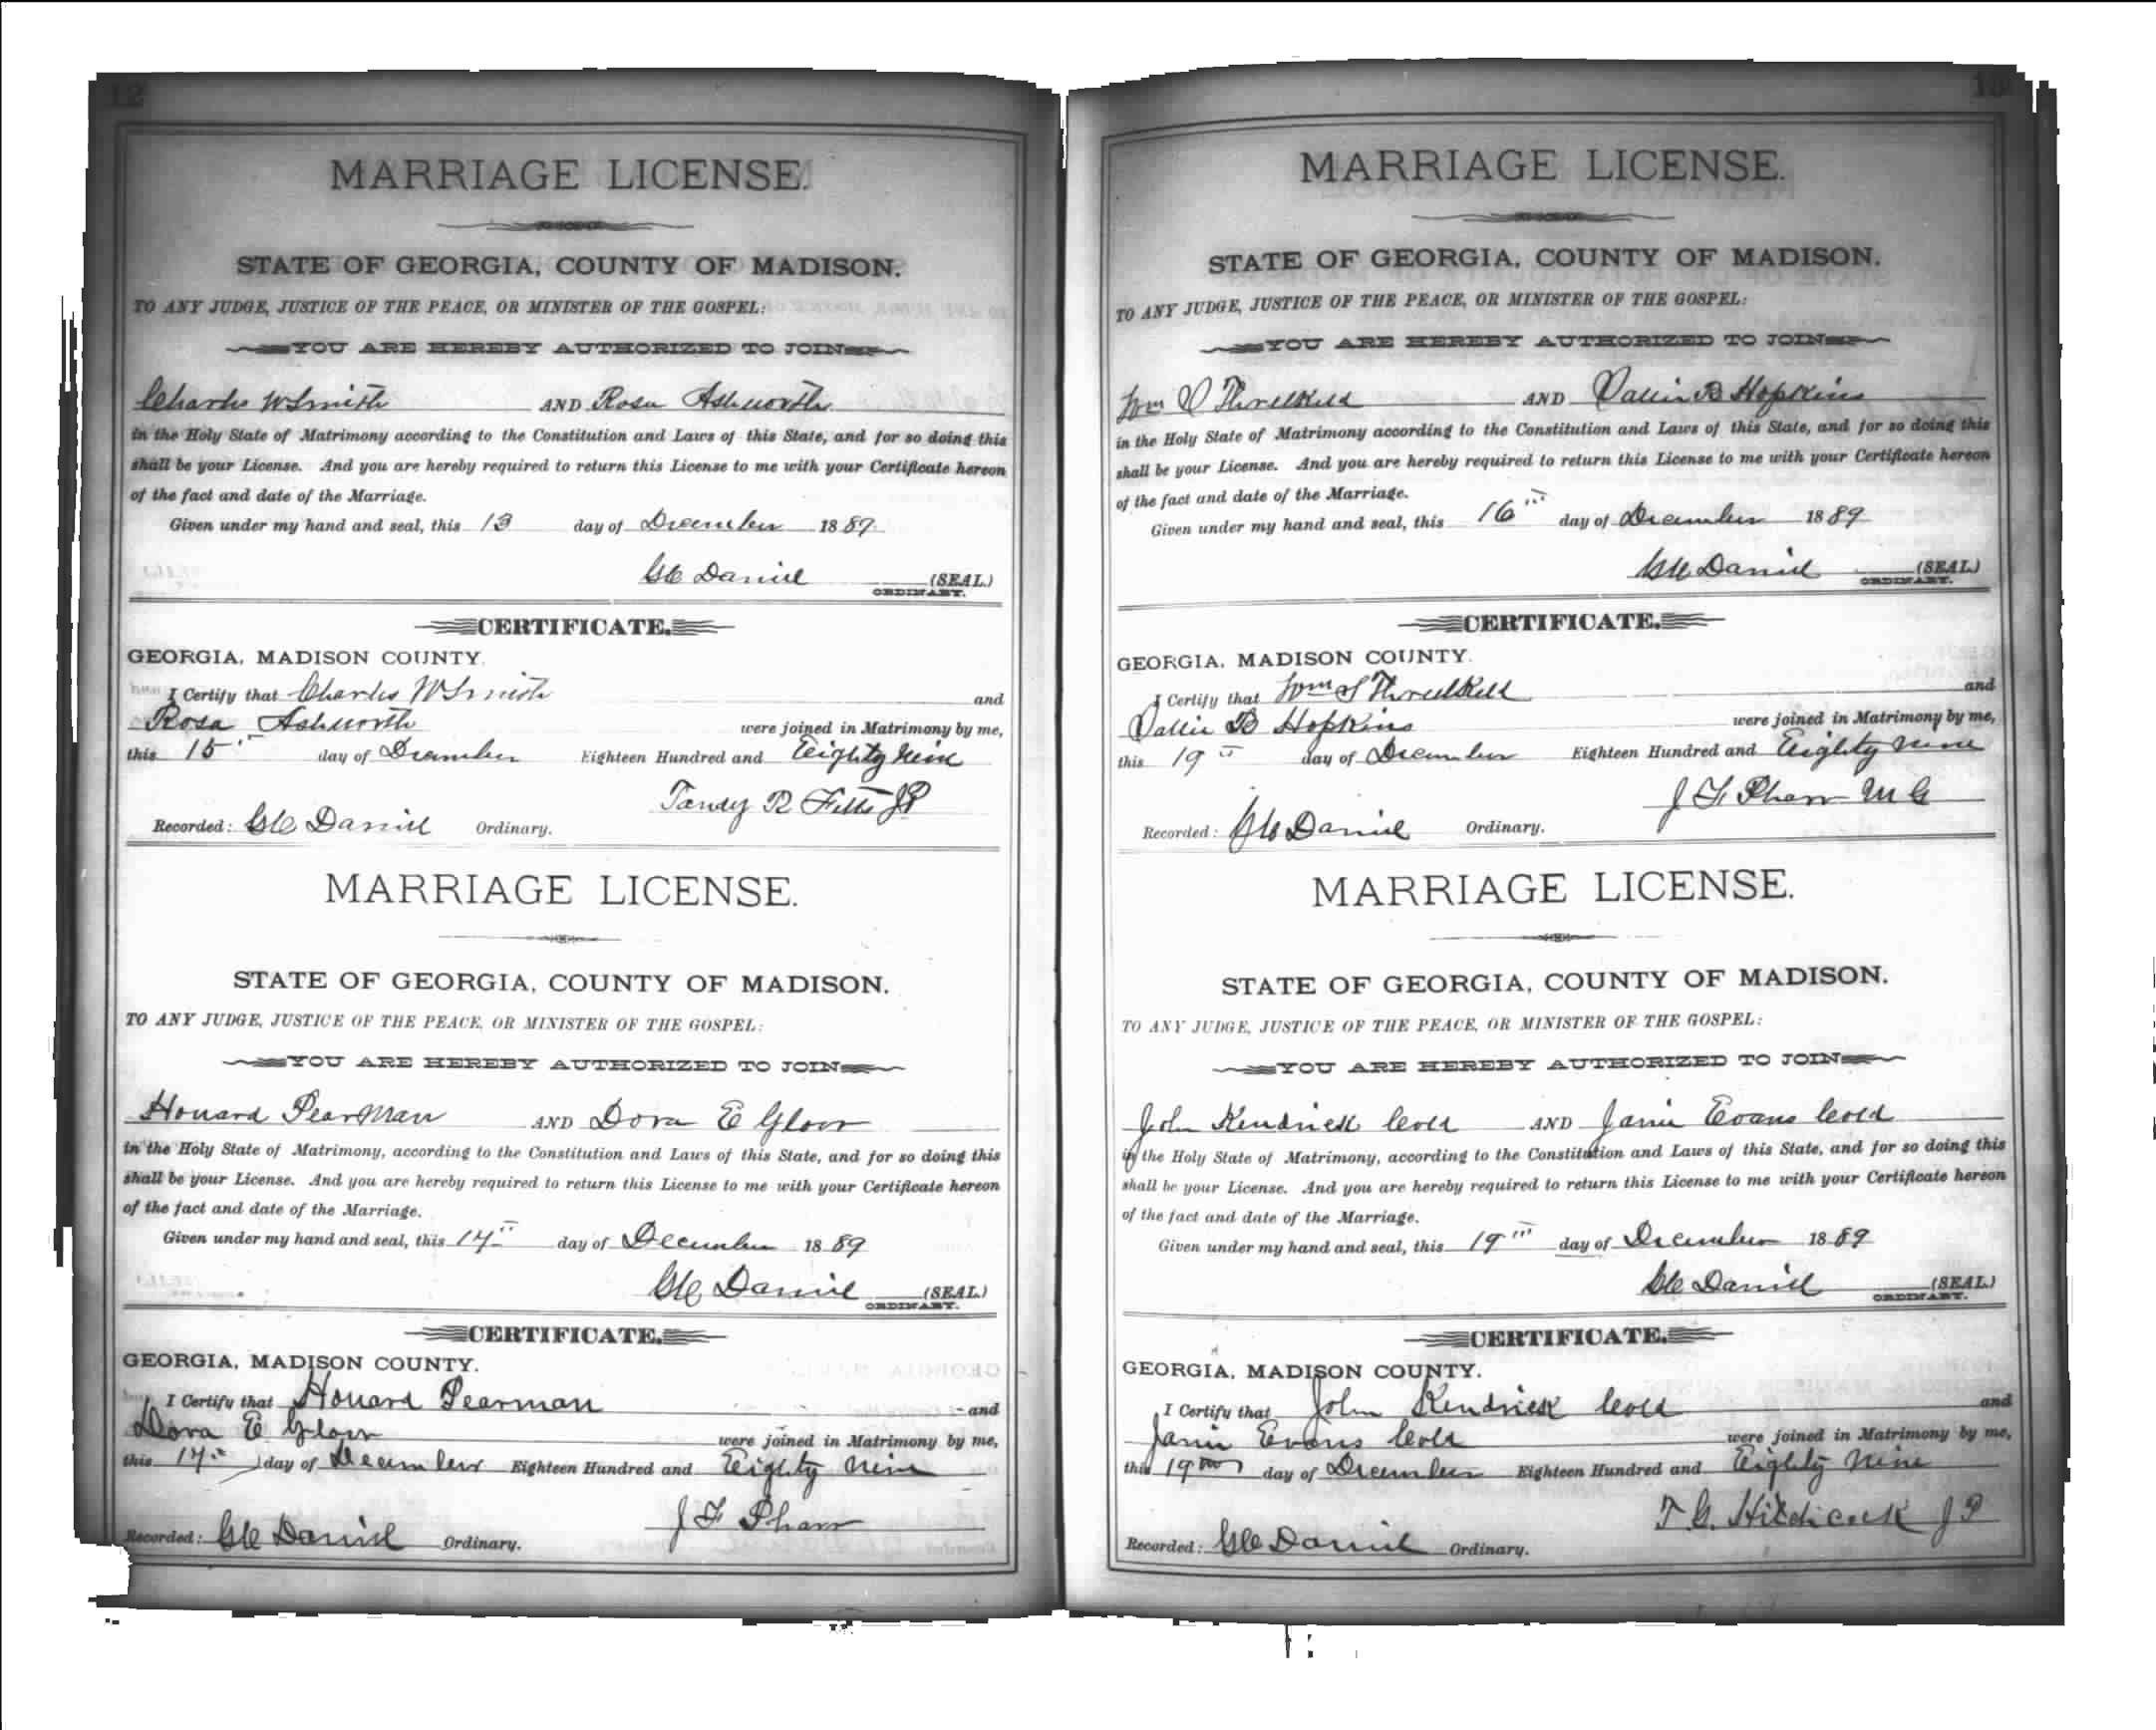 12
MARRIAGE LICENSE.
STATE OF GEORGIA, COUNTY OF MADISON.
TO ANY JUDGE, JUSTICE OF THE PEACE, OR MINISTER OF THE GOSPEL:
YOU ARE HEREBY AUTHORIZED TO JOIN
Charles W Smith AND Rosa Ashworth
in the Holy State of Matrimony according to the Constitution and Laws of this State, and for so doing this
shall be your License. And you are hereby required to return this License to me with your Certificate hereon
of the fact and date of the Marriage.
Given under my hand and seal, this 13 day of December 1889
Daniel (SEAL)
ORDINARY.
CERTIFICATE.
GEORGIA, MADISON COUNTY.
I Certify that Charles W Smith and
Rosa Ashworth were joined in Matrimony by me,
this 15 day of December Eighteen Hundred and Eighty Nine
Tandy R Fitts JP
Recorded: Daniel Ordinary.
MARRIAGE LICENSE.
STATE OF GEORGIA, COUNTY OF MADISON.
TO ANY JUDGE, JUSTICE OF THE PEACE, OR MINISTER OF THE GOSPEL:
YOU ARE HEREBY AUTHORIZED TO JOIN
Howard Pearman AND Dora E Glover
in the Holy State of Matrimony, according to the Constitution and Laws of this State, and for so doing this
shall be your License. And you are hereby required to return this License to me with your Certificate hereon
of the fact and date of the Marriage.
Given under my hand and seal, this 14 day of December 1889
Daniel (SEAL)
ORDINARY.
CERTIFICATE.
GEORGIA, MADISON COUNTY.
I Certify that Howard Pearman and
Dora E Glover were joined in Matrimony by me,
this 17 day of December Eighteen Hundred and Eighty Nine
J F Pharr
Recorded: Daniel Ordinary.
MARRIAGE LICENSE.
STATE OF GEORGIA, COUNTY OF MADISON.
TO ANY JUDGE, JUSTICE OF THE PEACE, OR MINISTER OF THE GOSPEL:
YOU ARE HEREBY AUTHORIZED TO JOIN
Wm Threlkeld AND B Hopkins
in the Holy State of Matrimony according to the Constitution and Laws of this State, and for so doing this
shall be your License. And you are hereby required to return this License to me with your Certificate hereon
of the fact and date of the Marriage.
Given under my hand and seal, this 16th day of December 1889
Daniel (SEAL)
ORDINARY.
CERTIFICATE.
GEORGIA, MADISON COUNTY.
I Certify that Wm S Threlkeld and
B Hopkins were joined in Matrimony by me,
this 19 day of December Eighteen Hundred and Eighty Nine
J F Pharr M G
Recorded: Daniel Ordinary.
MARRIAGE LICENSE.
STATE OF GEORGIA, COUNTY OF MADISON.
TO ANY JUDGE, JUSTICE OF THE PEACE, OR MINISTER OF THE GOSPEL:
YOU ARE HEREBY AUTHORIZED TO JOIN
John Kendrick Cold AND Janie Evans Cold
in the Holy State of Matrimony, according to the Constitution and Laws of this State, and for so doing this
shall be your License. And you are hereby required to return this License to me with your Certificate hereon
of the fact and date of the Marriage.
Given under my hand and seal, this 19th day of December 1889
Daniel (SEAL)
ORDINARY.
CERTIFICATE.
GEORGIA, MADISON COUNTY.
I Certify that John Kendrick Cold and
Janie Evans Cold were joined in Matrimony by me,
this 19 day of December Eighteen Hundred and Eighty Nine
T. G. Hitchcock J P
Recorded: Daniel Ordinary.